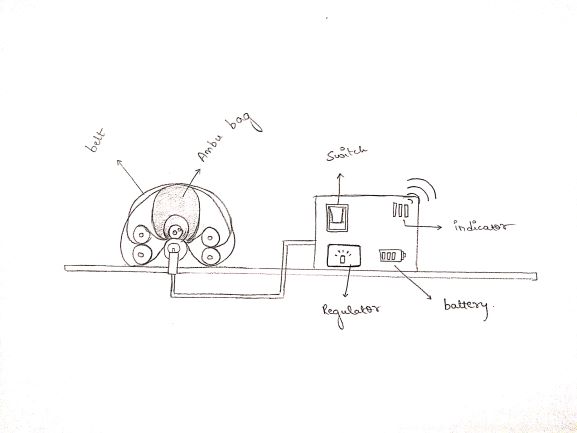 belt
Ambu bag
Switch
indicator
Regulator
battery.